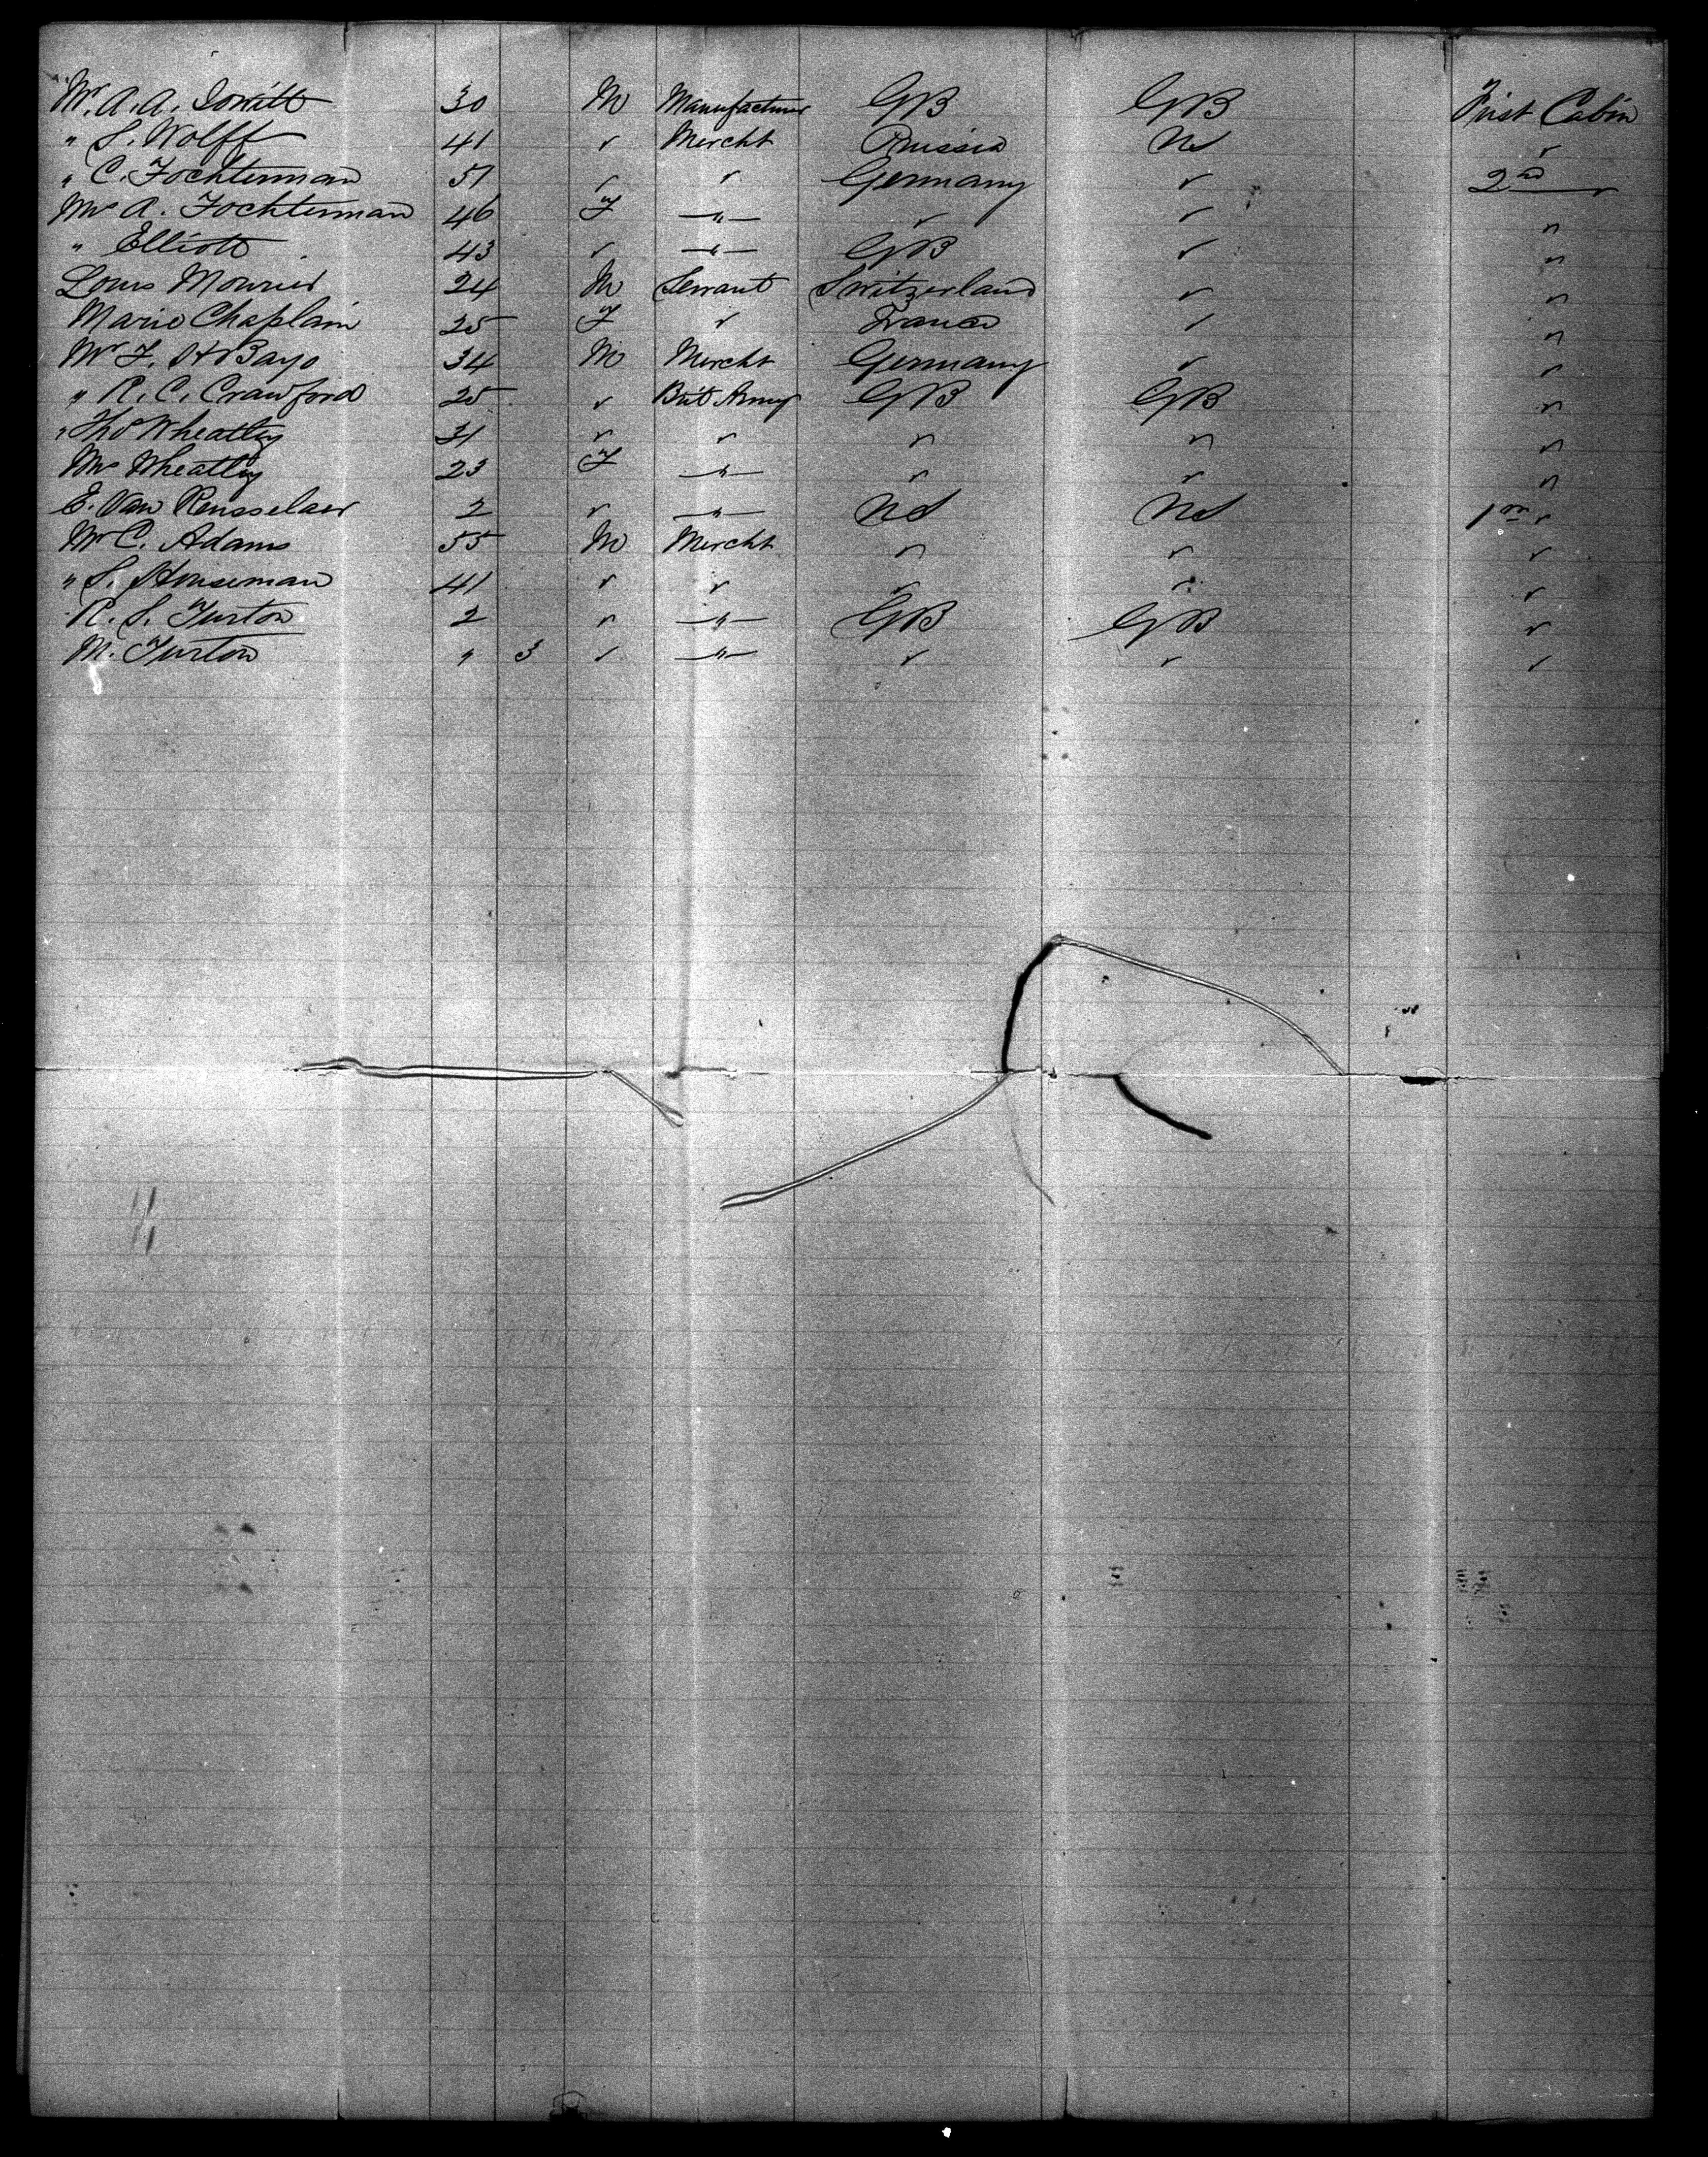 Mr. A. A. Jowitt 30 M Manufacturer GB GB First Cabin
" S. Wolff 41 " Mercht Russia US "
" C. Fochterman 51 " " Germany " 2nd "
Mrs A. Fochterman 46 F —"— " " "
" Elliott 43 " —"— GB " "
Louis Mourier 24 M Servant Switzerland " "
Marie Chaplain 25 F " France " "
Mr F. H Bayo 34 M Mercht Germany " "
" R. C. Crawford 25 " Brit Army GB GB "
" Tho Wheatley 31 " " " " "
Mrs Wheatley 23 F —"— " " "
E. Van Rensselaer 2 " —"— US US 1st "
Mr C. Adams 55 M Mercht " " "
" S. Houseman 41 " " " " "
R. S. Turton 2 " —"— GB GB "
M. Turton " 3 " —"— " " "